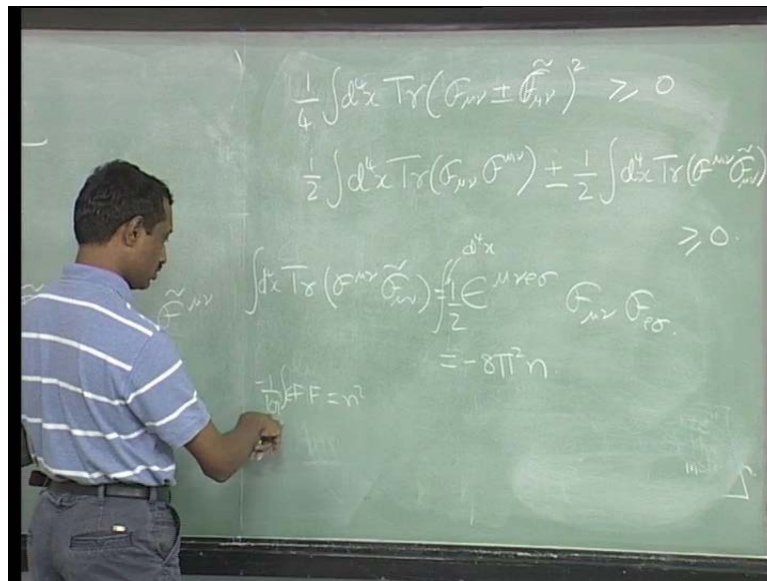 1/4 ∫d⁴x Tr(F_μν ± F̃_μν)² ≥ 0
1/2 ∫d⁴x Tr(F_μν F^μν) ± 1/2 ∫d⁴x Tr(F^μν F̃_μν)
≥ 0.
F̃^μν
∫d⁴x Tr(F^μν F̃_μν) = ∫ d⁴x 1/2 ε^μνρσ F_μν F_ρσ.
= -8π²n
∫εFF = n